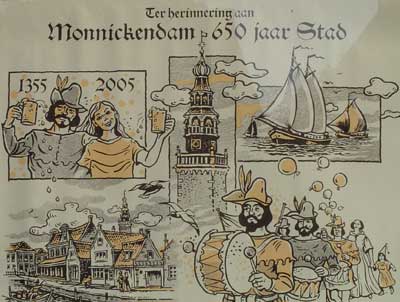 Ter herinnering aan
Monnickendam 650 jaar Stad
1355 2005